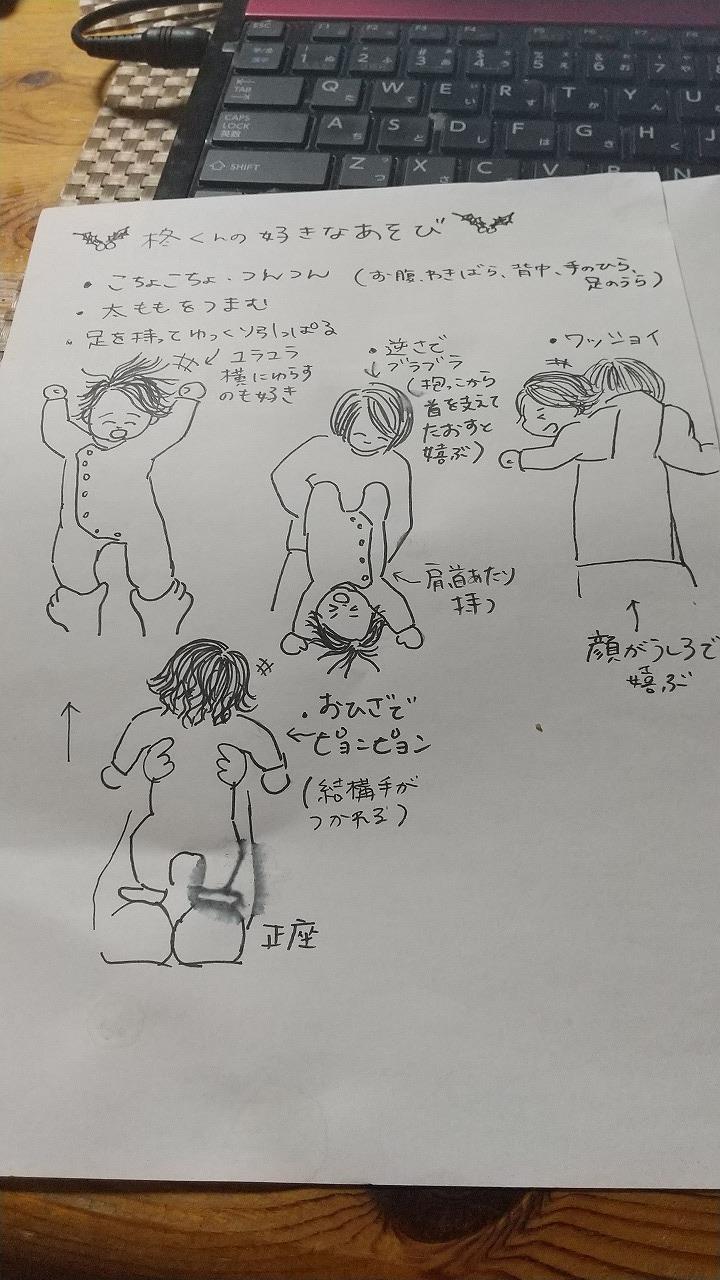 柊くんの好きなあそび
・こちょこちょ、つんつん (お腹、わきばら、背中、手のひら、
足のうら)
・太ももをつまむ
・足を持ってゆっくり引っぱる
ユラユラ
横にゆらす
のも好き
・逆さで
ブラブラ
(抱っこから
首を支えて
たおすと
嬉ぶ)
肩首あたり
持つ
・ワッショイ
顔がうしろで
嬉ぶ
・おひざで
ピョンピョン
(結構手が
つかれる)
正座
ESC F1 F2 F3 F4
1 ぬ 2 ふ 3 4 5 6 7
TAB Q た W て E い R す T か Y ん U
CAPS LOCK 英数 A ち S と D し F は G き H く J
SHIFT Z つ X さ C V B N